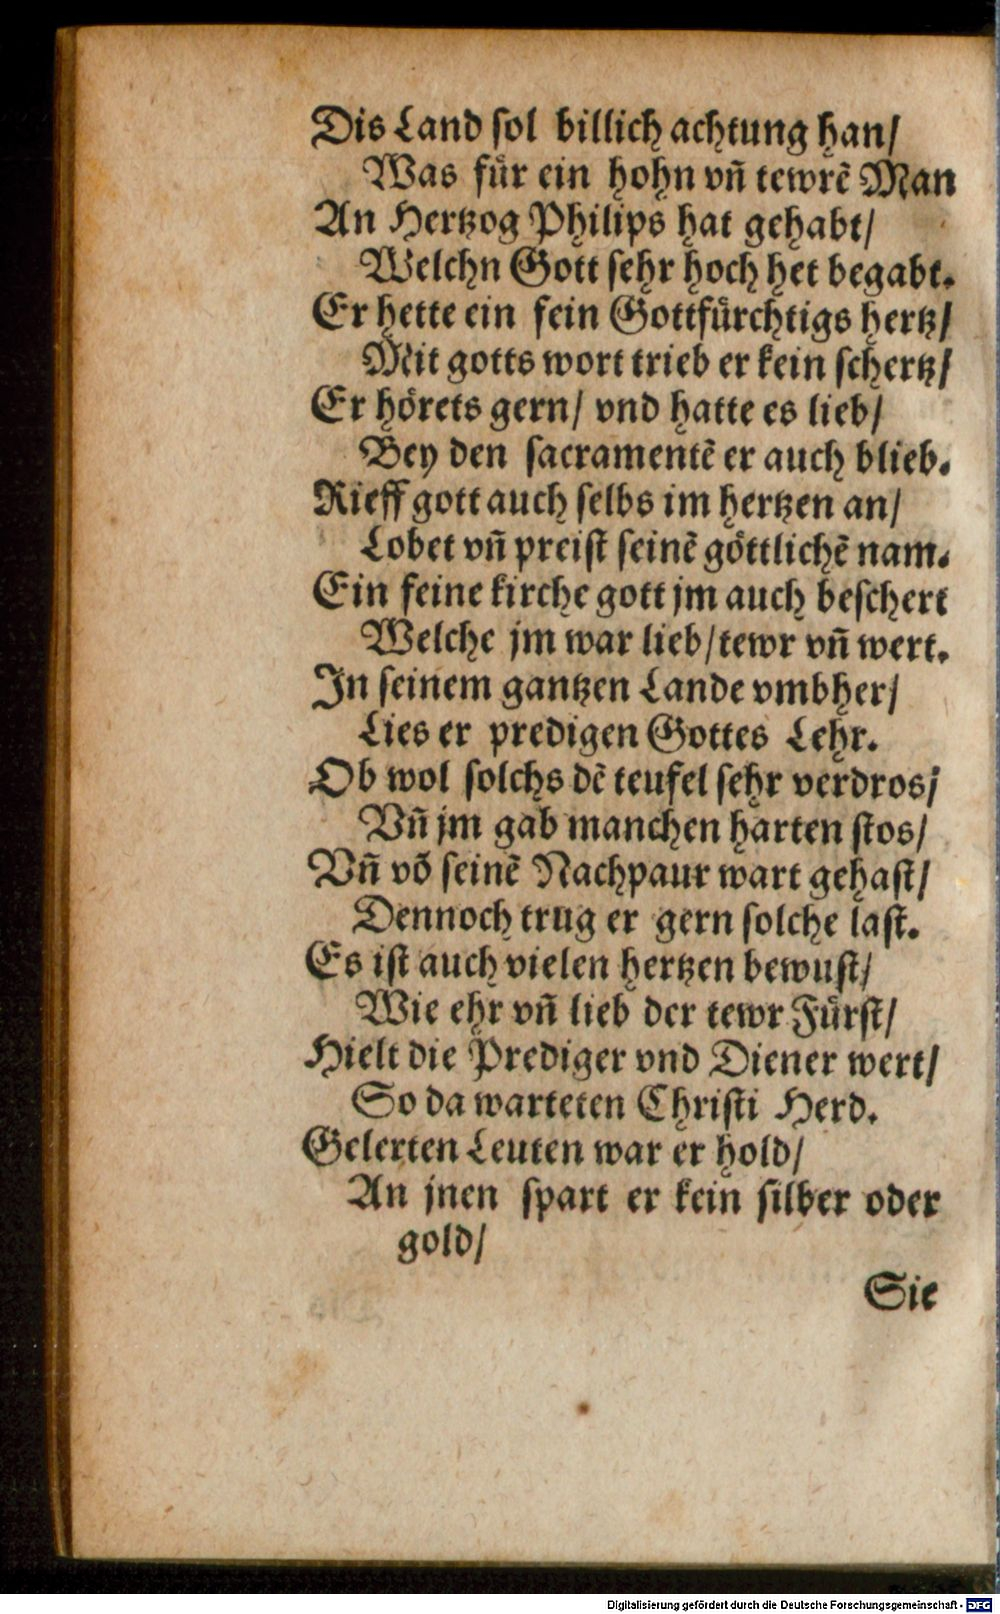 Dis Land sol billich achtung han/
Was für ein hohn vñ tewrē Man
An Hertzog Philips hat gehabt/
Welchn Gott sehr hoch het begabt.
Er hette ein fein Gottfürchtigs hertz/
Mit gotts wort trieb er kein schertz/
Er hörets gern/ vnd hatte es lieb/
Bey den sacramentē er auch blieb.
Rieff gott auch selbs im hertzen an/
Lobet vñ preist seinē göttlichē nam.
Ein feine kirche gott jm auch beschert
Welche jm war lieb/tewr vñ wert.
In seinem gantzen Lande vmbher/
Lies er predigen Gottes Lehr.
Ob wol solchs dē teufel sehr verdros/
Vñ jm gab manchen harten stos/
Vñ võ seinē Nachpaur wart gehast/
Dennoch trug er gern solche last.
Es ist auch vielen hertzen bewust/
Wie ehr vñ lieb der tewr Fürst/
Hielt die Prediger vnd Diener wert/
So da warteten Christi Herd.
Gelerten Leuten war er hold/
An jnen spart er kein silber oder
gold/
Sie
Digitalisierung gefördert durch die Deutsche Forschungsgemeinschaft - DFG